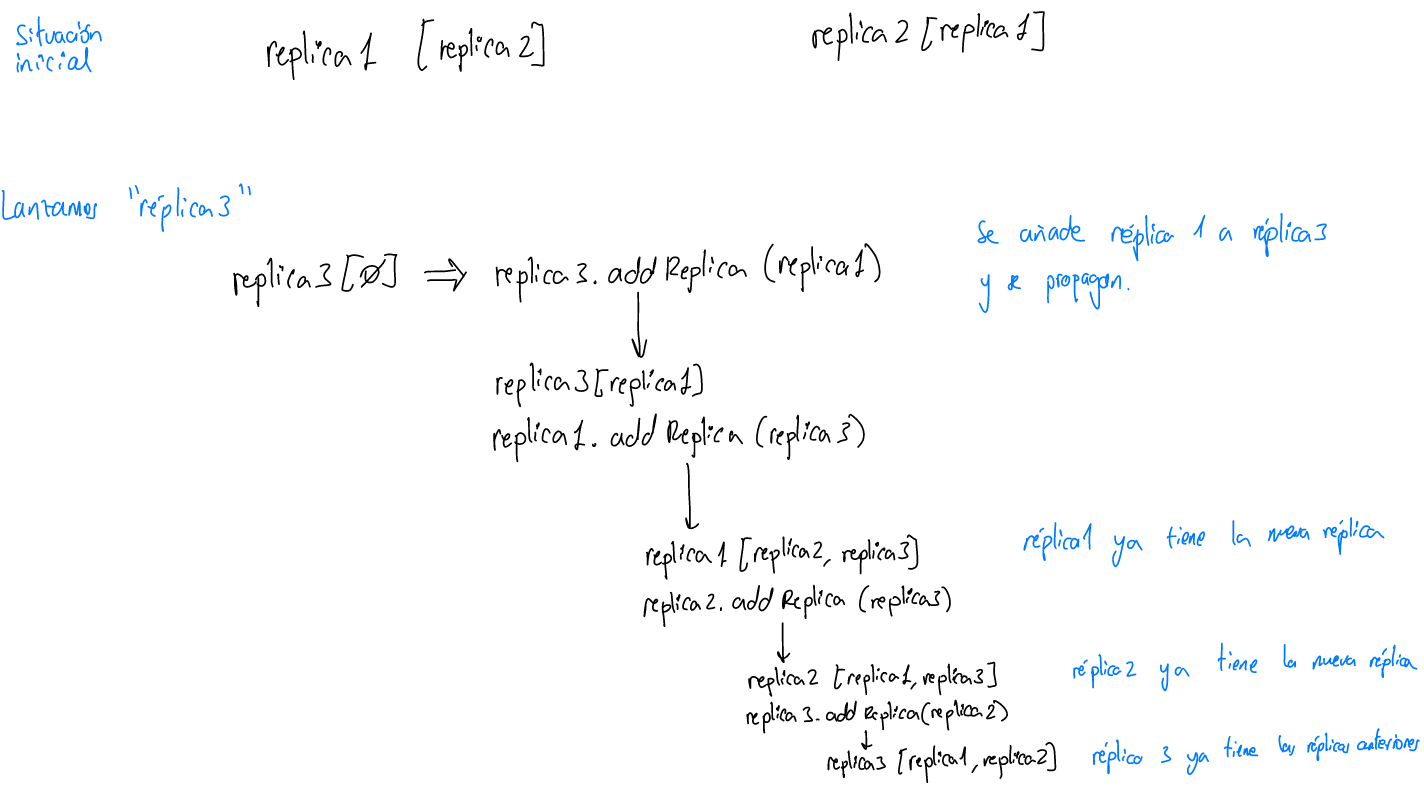 Situación
inicial
replica1 [replica2]
replica2 [replica1]
Lanzamos "réplica3"
replica3 [∅] ⇒ replica3.addReplica (replica1)
Se añade réplica 1 a réplica3
y se propagan.
replica3 [replica1]
replica1.addReplica (replica3)
replica1 [replica2, replica3]
réplica1 ya tiene la nueva réplica
replica2.addReplica (replica3)
replica2 [replica1, replica3]
réplica2 ya tiene la nueva réplica
replica3.addReplica(replica2)
replica3 [replica1, replica2]
réplica 3 ya tiene las réplicas anteriores